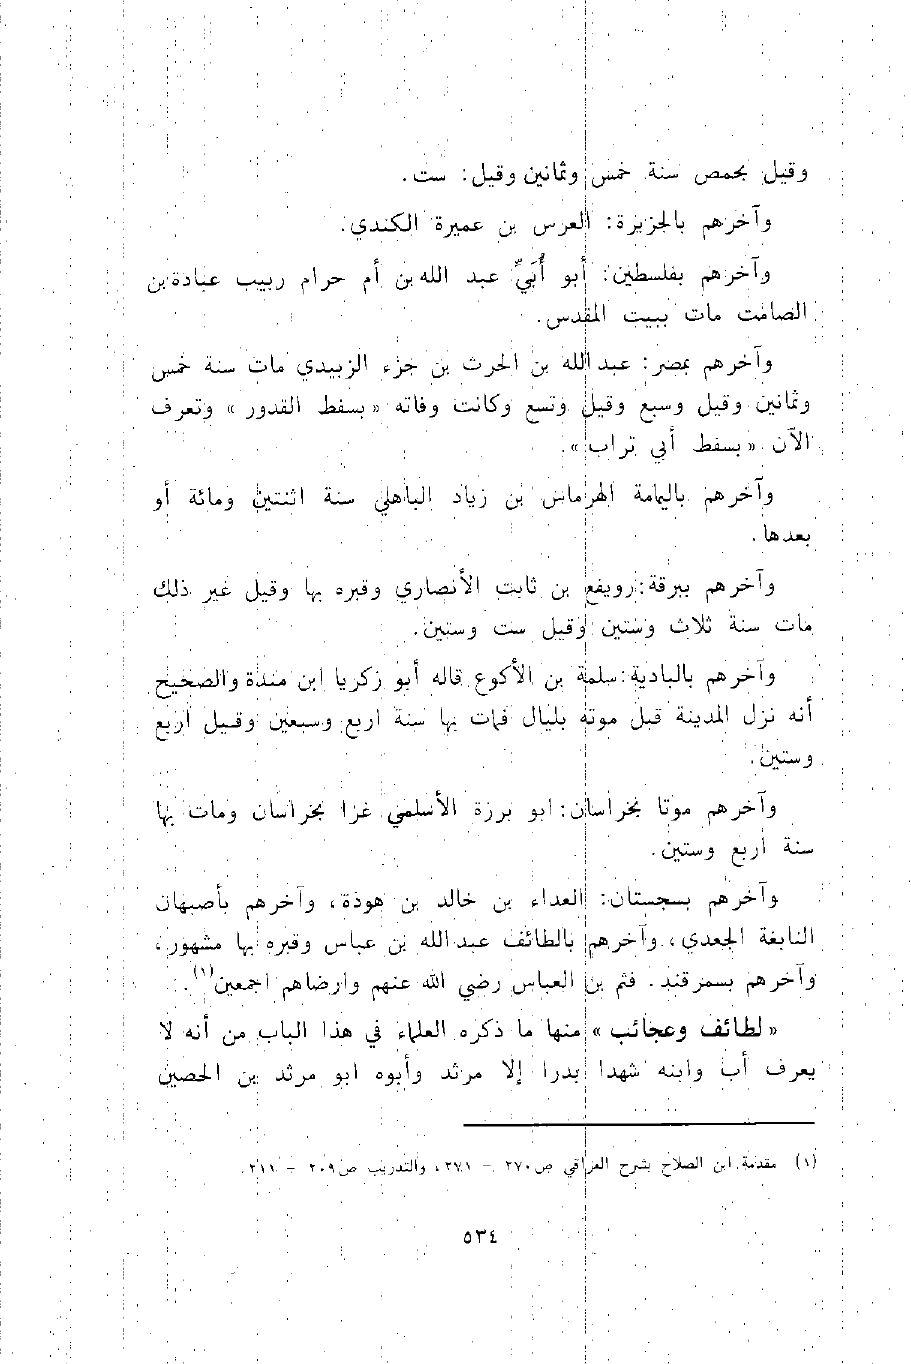 وقيل بحمص سنة خمس وثمانين وقيل: ست.
وآخرهم بالجزيرة: العرس بن عميرة الكندي.
وآخرهم بفلسطين: أبو أُبَيّ عبد الله بن أم حرام ربيب عبادة بن
الصامت مات ببيت المقدس.
وآخرهم بمصر: عبد الله بن الحرث بن جزء الزبيدي مات سنة خمس
وثمانين وقيل وسبع وقيل وتسع وكانت وفاته «بسفط القدور» وتعرف
الآن «بسفط أبي تراب».
وآخرهم باليمامة الهرماس بن زياد الباهلي سنة اثنتين ومائة أو
بعدها.
وآخرهم ببرقة: رويفع بن ثابت الأنصاري وقبره بها وقيل غير ذلك
مات سنة ثلاث وستين وقيل ست وستين.
وآخرهم بالبادية: سلمة بن الأكوع قاله أبو زكريا ابن مندة والصحيح
أنه نزل المدينة قبل موته بليال فمات بها سنة اربع وسبعين وقيل أربع
وستين.
وآخرهم موتا بخراسان: ابو برزة الأسلمي غزا بخراسان ومات بها
سنة أربع وستين.
وآخرهم بسجستان: العداء بن خالد بن هوذة، وآخرهم بأصبهان
النابغة الجعدي، وآخرهم بالطائف عبد الله بن عباس وقبره بها مشهور،
وآخرهم بسمرقند. قثم بن العباس رضي الله عنهم وارضاهم اجمعين(١).
«لطائف وعجائب» منها ما ذكره العلماء في هذا الباب من أنه لا
يعرف أب وابنه شهدا بدرا إلا مرثد وأبوه ابو مرثد بن الحصين
(١) مقدمة ابن الصلاح بشرح العراقي ص ٢٧٠ - ٢٧١، والتدريب ص ٢٠٩ - ٢١١.
٥٣٤